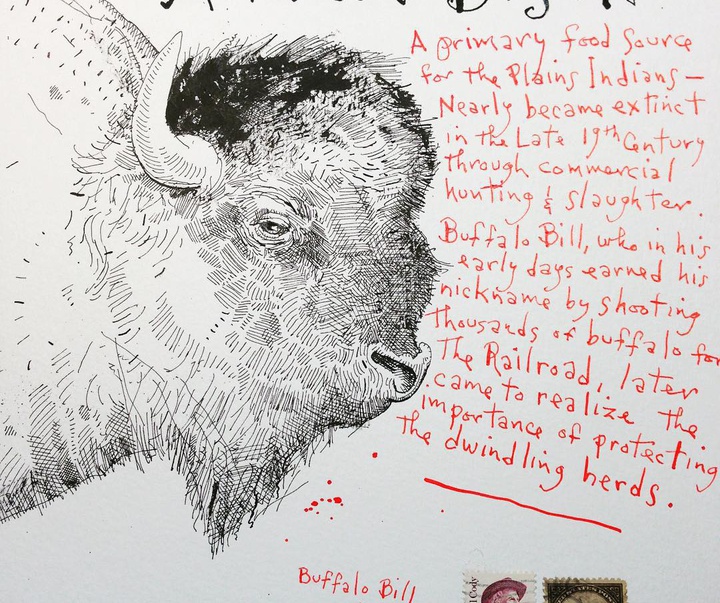 A primary food source
for the Plains Indians—
Nearly became extinct
in the Late 19th Century
through commercial
hunting & slaughter.
Buffalo Bill, who in his
early days earned his
nickname by shooting
thousands of buffalo for
The Railroad, later
came to realize the
importance of protecting
the dwindling herds.
Buffalo Bill
Cody